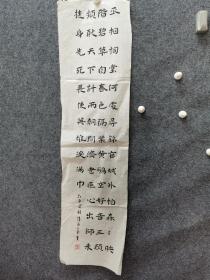 丞相祠堂何處尋錦官城外柏森々映
階碧草自春色隔葉黃鸝空好音三顧
頻煩天下計兩朝開濟老臣心出師未
捷身先死長使英雄淚滿巾